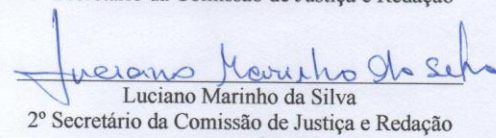 º Secretário da Comissão de Justiça e Redação
Luciano Marinho da Silva
Luciano Marinho da Silva
2º Secretário da Comissão de Justiça e Redação